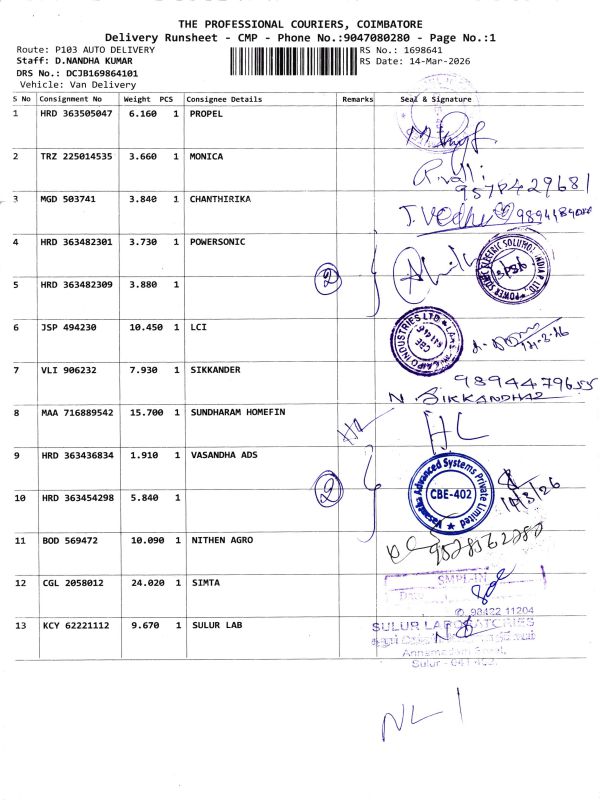 THE PROFESSIONAL COURIERS, COIMBATORE
Delivery Runsheet - CMP - Phone No.:9047080280 - Page No.:1
Route: P103 AUTO DELIVERY
RS No.: 1698641
Staff: D.NANDHA KUMAR
RS Date: 14-Mar-2026
DRS No.: DCJB169864101
Vehicle: Van Delivery
S No Consignment No Weight PCS Consignee Details Remarks Seal & Signature
1 HRD 363505047 6.160 1 PROPEL
2 TRZ 225014535 3.660 1 MONICA
R.valli
9578429681
3 MGD 503741 3.840 1 CHANTHIRIKA
J.Vedhu
4 HRD 363482301 3.730 1 POWERSONIC
5 HRD 363482309 3.880 1
2
6 JSP 494230 10.450 1 LCI
7 VLI 906232 7.930 1 SIKKANDER
N. SIKKANDHAR
8 MAA 716889542 15.700 1 SUNDHARAM HOMEFIN
HL
9 HRD 363436834 1.910 1 VASANDHA ADS
Advanced Systems Private Limited
CBE-402
14/3/26
10 HRD 363454298 5.840 1
2
11 BOD 569472 10.090 1 NITHEN AGRO
12 CGL 2058012 24.020 1 SIMTA
SMPL-IN
98422 11204
13 KCY 62221112 9.670 1 SULUR LAB
SULUR LABORATORIES
NL 1